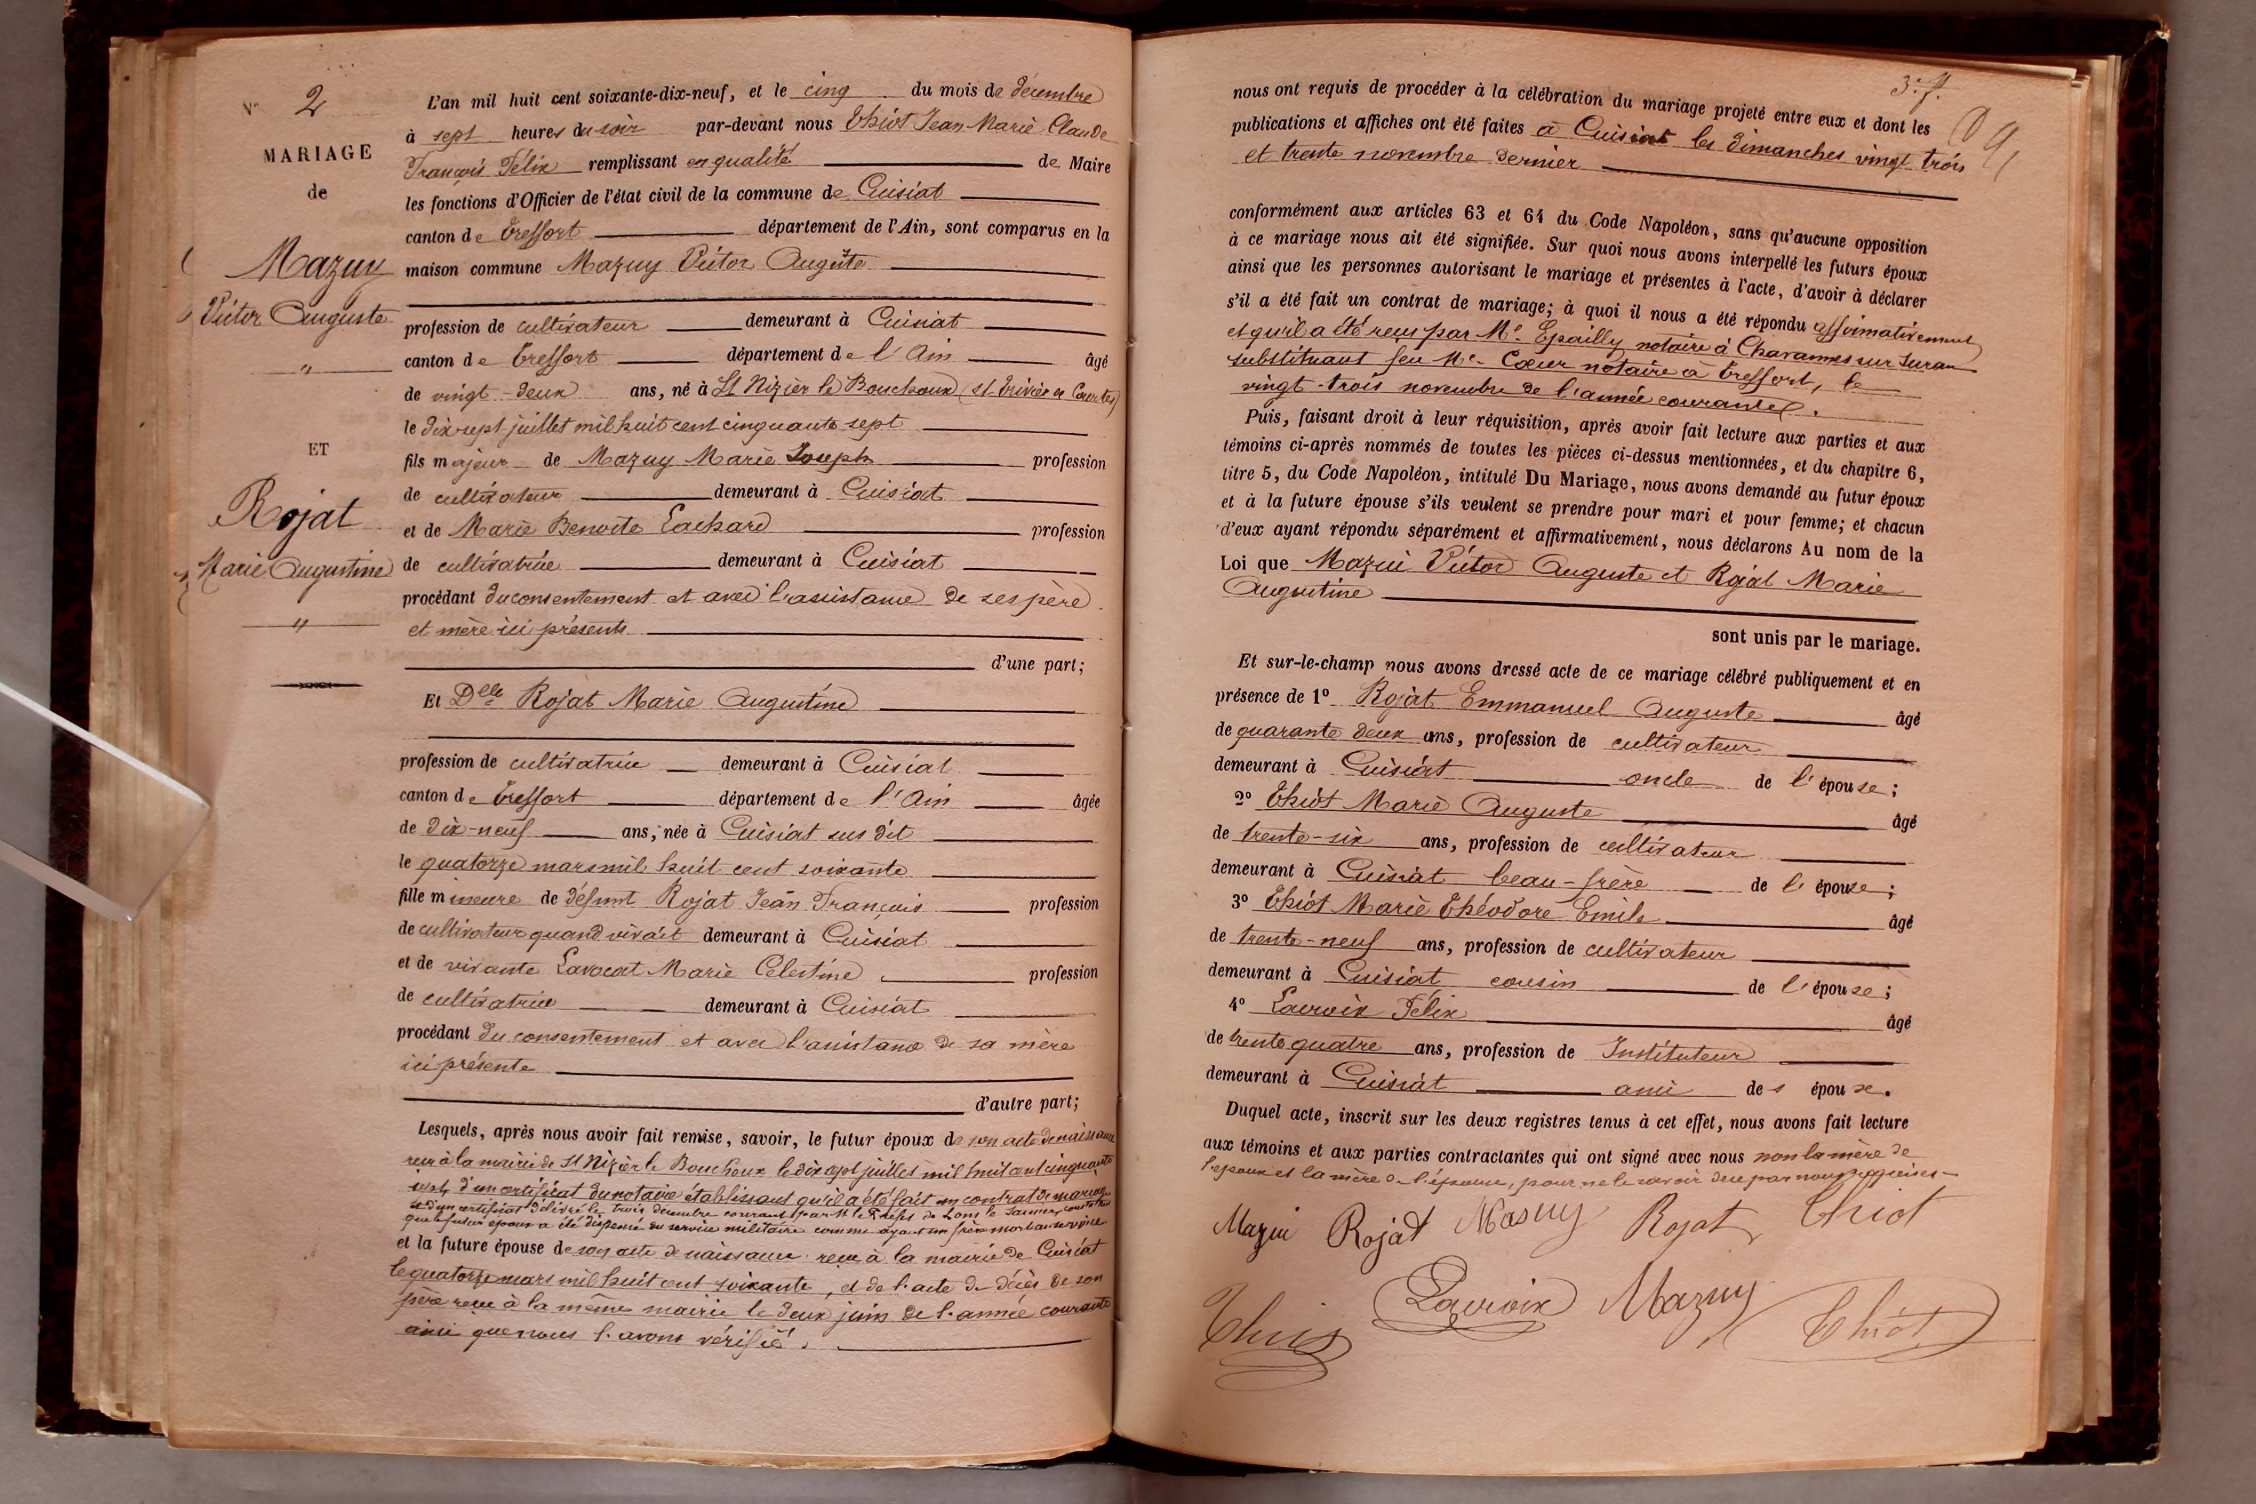 N° 2
MARIAGE
de
Mazuy
Victor Auguste
"
ET
Rojat
Marie Augustine
"
L'an mil huit cent soixante-dix-neuf, et le cinq du mois de décembre
à sept heures du soir par-devant nous Thiot Jean Marie Claude
François Félix remplissant en qualité de Maire
les fonctions d'Officier de l'état civil de la commune de Cuisiat
canton de Treffort département de l'Ain, sont comparus en la
maison commune Mazuy Victor Auguste
profession de cultivateur demeurant à Cuisiat
canton de Treffort département de l'Ain âgé
de vingt-deux ans, né à St Nizier le Bouchoux (St Trivier de Courtes)
le dix sept juillet mil huit cent cinquante sept
fils majeur de Mazuy Marie Joseph profession
de cultivateur demeurant à Cuisiat
et de Marie Benoite Lachard profession
de cultivatrice demeurant à Cuisiat
procédant du consentement et avec l'assistance de ses père
et mère ici présents
d'une part;
Et Delle Rojat Marie Augustine
profession de cultivatrice demeurant à Cuisiat
canton de Treffort département de l'Ain âgée
de dix-neuf ans, née à Cuisiat sus dit
le quatorze mars mil huit cent soixante
fille mineure de défunt Rojat Jean François profession
de cultivateur quand vivait demeurant à Cuisiat
et de vivante Lavocat Marie Célestine profession
de cultivatrice demeurant à Cuisiat
procédant du consentement et avec l'assistance de sa mère
ici présente
d'autre part;
Lesquels, après nous avoir fait remise, savoir, le futur époux de son acte de naissance
reçu à la mairie de St Nizier le Bouchoux le dix sept juillet mil huit cent cinquante
sept, d'un certificat du notaire établissant qu'il a été fait un contrat de mariage
et d'un certificat délivré le trois décembre courant par M. le Préfet de Lons le Saunier, constatant
que le futur époux a été dispensé du service militaire comme ayant un frère mort au service
et la future épouse de son acte de naissance reçu à la mairie de Cuisiat
le quatorze mars mil huit cent soixante, et de l'acte de décès de son
père reçu à la même mairie le deux juin de l'année courante
ainsi que nous l'avons vérifié.
3e f.
nous ont requis de procéder à la célébration du mariage projeté entre eux et dont les
publications et affiches ont été faites à Cuisiat les dimanches vingt trois
et trente novembre dernier
conformément aux articles 63 et 64 du Code Napoléon, sans qu'aucune opposition
à ce mariage nous ait été signifiée. Sur quoi nous avons interpellé les futurs époux
ainsi que les personnes autorisant le mariage et présentes à l'acte, d'avoir à déclarer
s'il a été fait un contrat de mariage; à quoi il nous a été répondu affirmativement
et qu'il a été reçu par Me Epailly notaire à Chavannes sur Suran
substituant feu Me Cœur notaire à Treffort, le
vingt-trois novembre de l'année courante.
Puis, faisant droit à leur réquisition, après avoir fait lecture aux parties et aux
témoins ci-après nommés de toutes les pièces ci-dessus mentionnées, et du chapitre 6,
titre 5, du Code Napoléon, intitulé Du Mariage, nous avons demandé au futur époux
et à la future épouse s'ils veulent se prendre pour mari et pour femme; et chacun
d'eux ayant répondu séparément et affirmativement, nous déclarons Au nom de la
Loi que Mazui Victor Auguste et Rojat Marie
Augustine
sont unis par le mariage.
Et sur-le-champ nous avons dressé acte de ce mariage célébré publiquement et en
présence de 1° Rojat Emmanuel Auguste âgé
de quarante deux ans, profession de cultivateur
demeurant à Cuisiat oncle de l'épouse;
2° Thiot Marie Auguste âgé
de trente-six ans, profession de cultivateur
demeurant à Cuisiat beau-frère de l'épouse;
3° Thiot Marie Théodore Emile âgé
de trente-neuf ans, profession de cultivateur
demeurant à Cuisiat cousin de l'épouse;
4° Lacroix Félix âgé
de trente quatre ans, profession de Instituteur
demeurant à Cuisiat ami des époux.
Duquel acte, inscrit sur les deux registres tenus à cet effet, nous avons fait lecture
aux témoins et aux parties contractantes qui ont signé avec nous non la mère de
l'époux et la mère de l'épouse, pour ne le savoir de ce par nous requises
Mazui Rojat Masuy Rojat Thiot
Thiot Lacroix Mazuy Thiot